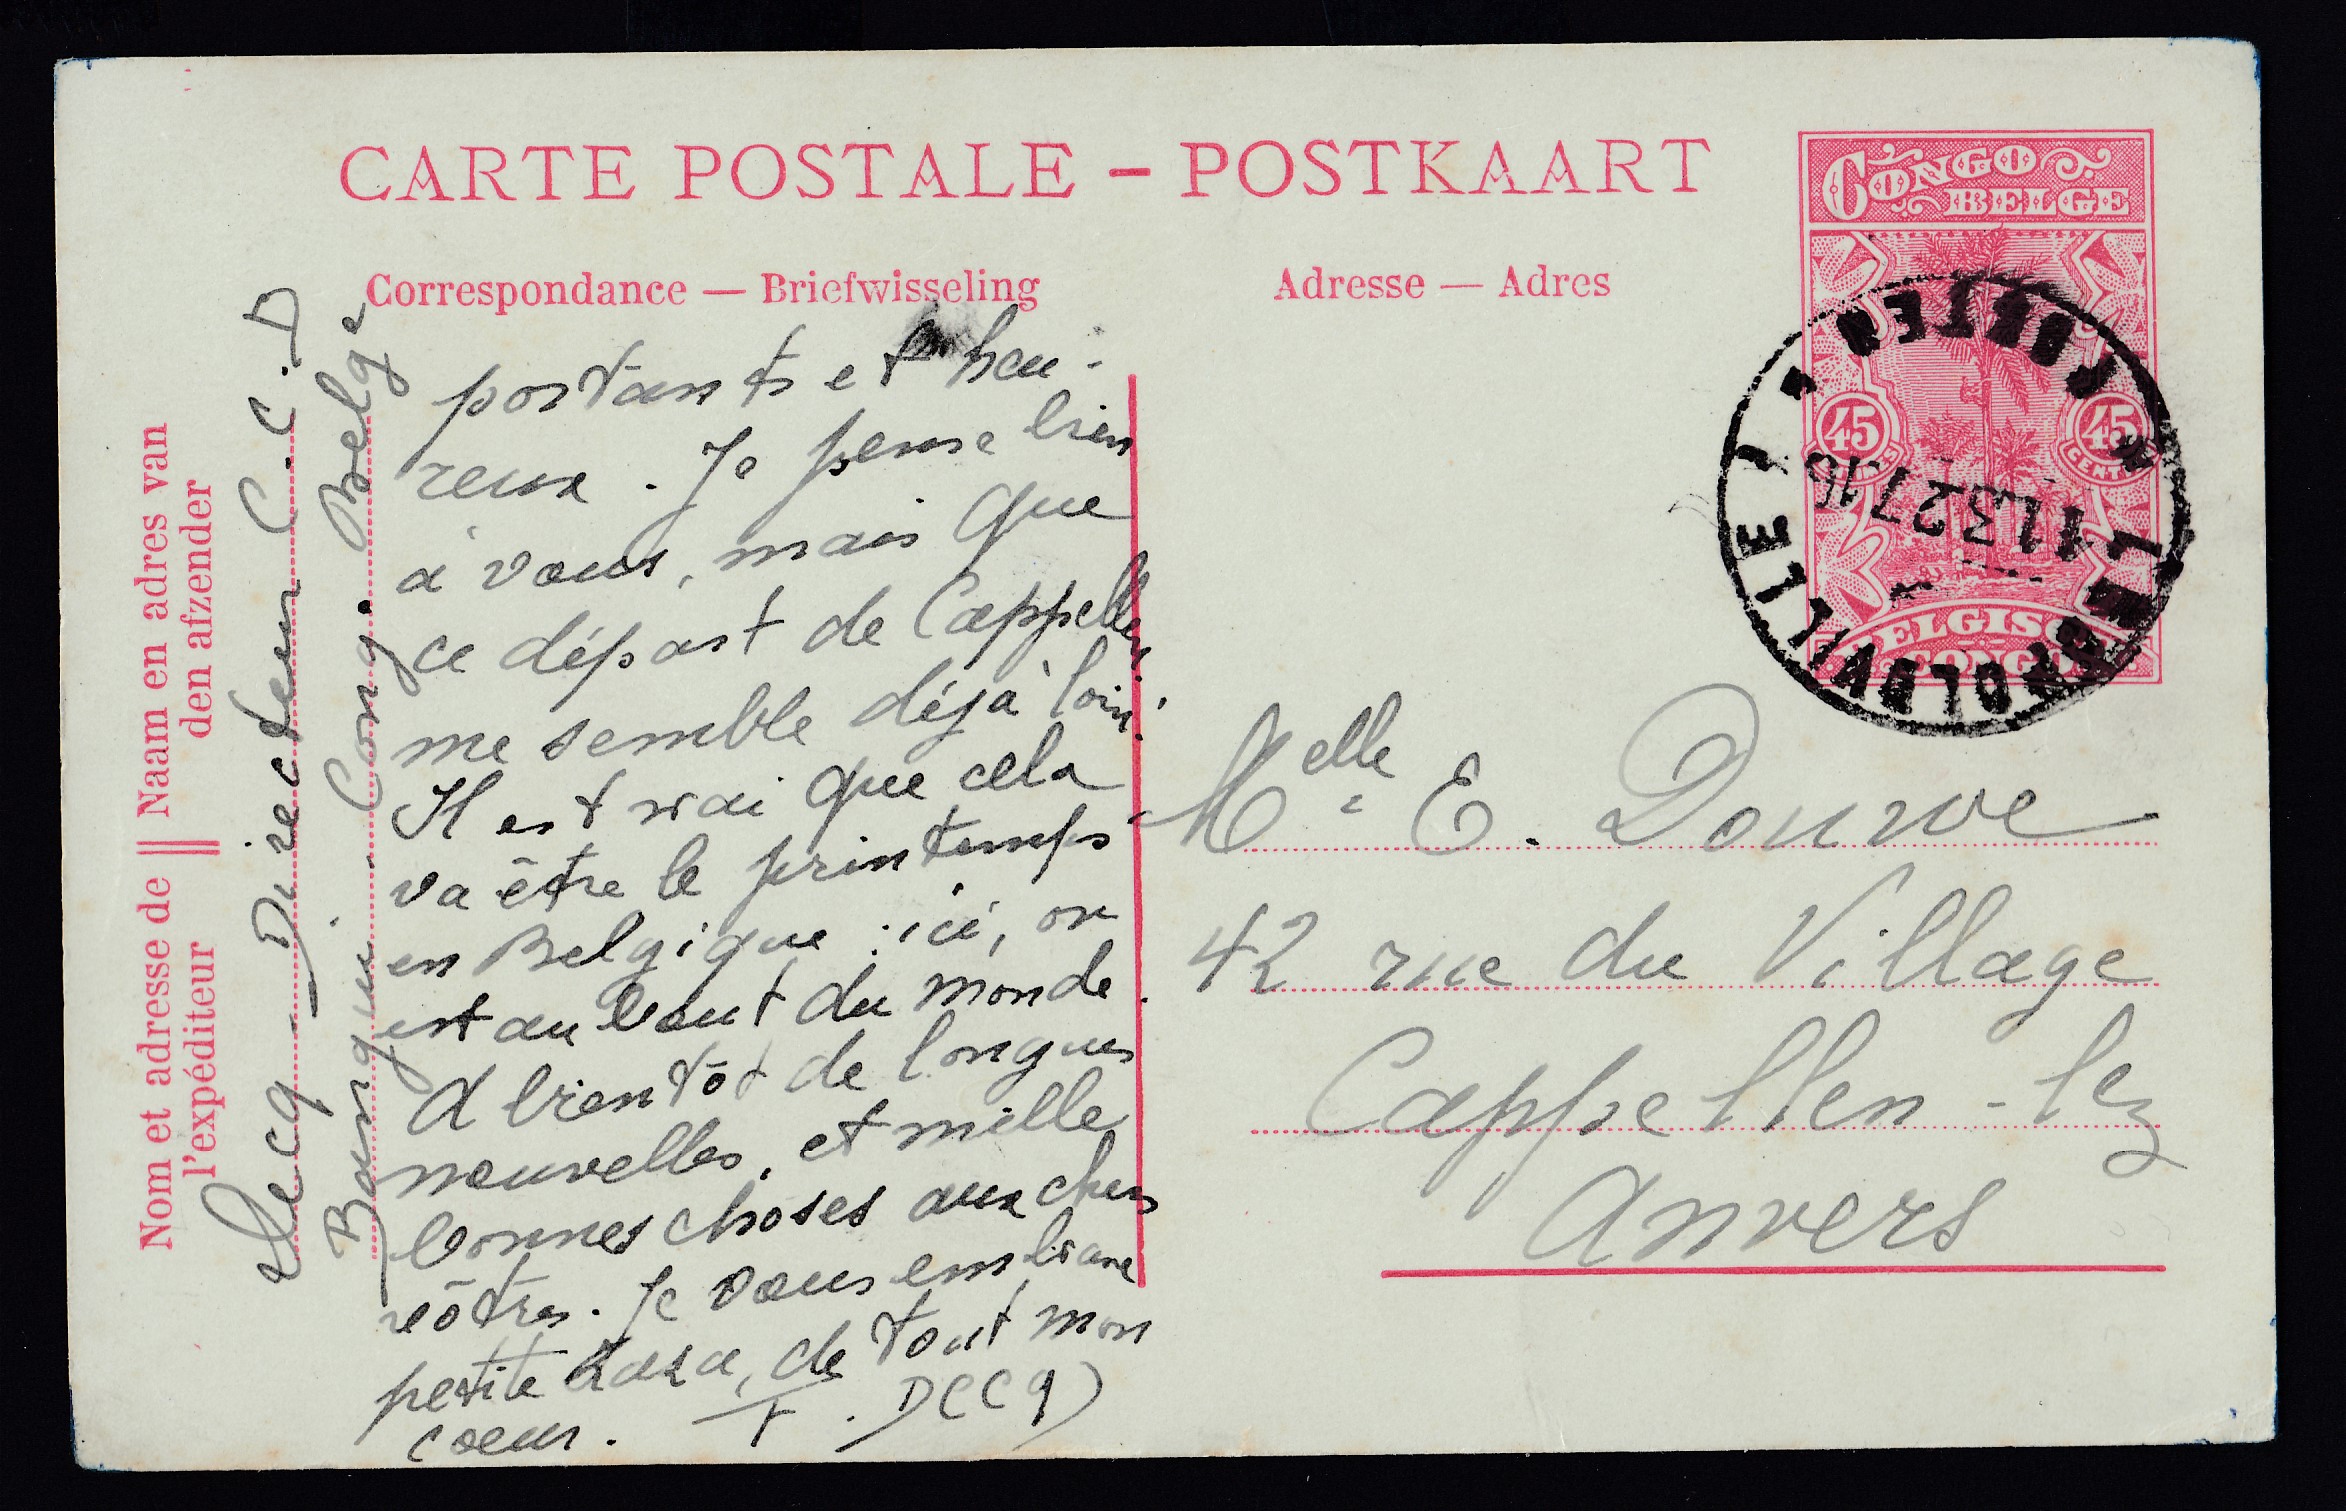 CARTE POSTALE – POSTKAART
CONGO BELGE
45 CENTIMES
45 CENT
11.3.27 16
LEOPOLDVILLE
BELGISCH CONGO
Correspondance — Briefwisseling
Adresse — Adres
Nom et adresse de l'expéditeur || Naam en adres van den afzender
Decq Directeur C.C.D
Bangui. Congo. Belge
portants et heu-
reux. Je pense bien
à vous, mais que
ce départ de Cappellen
me semble déjà loin!
Il est vrai que cela
va être le printemps
en Belgique : ici, on
est au bout du monde.
A bientôt de longues
nouvelles, et mille
bonnes choses aux chers
vôtres. Je vous embrasse
petite Zaza, de tout mon
coeur. F. Decq
Melle E. Douwe
42 rue du Village
Cappellen-lez
Anvers